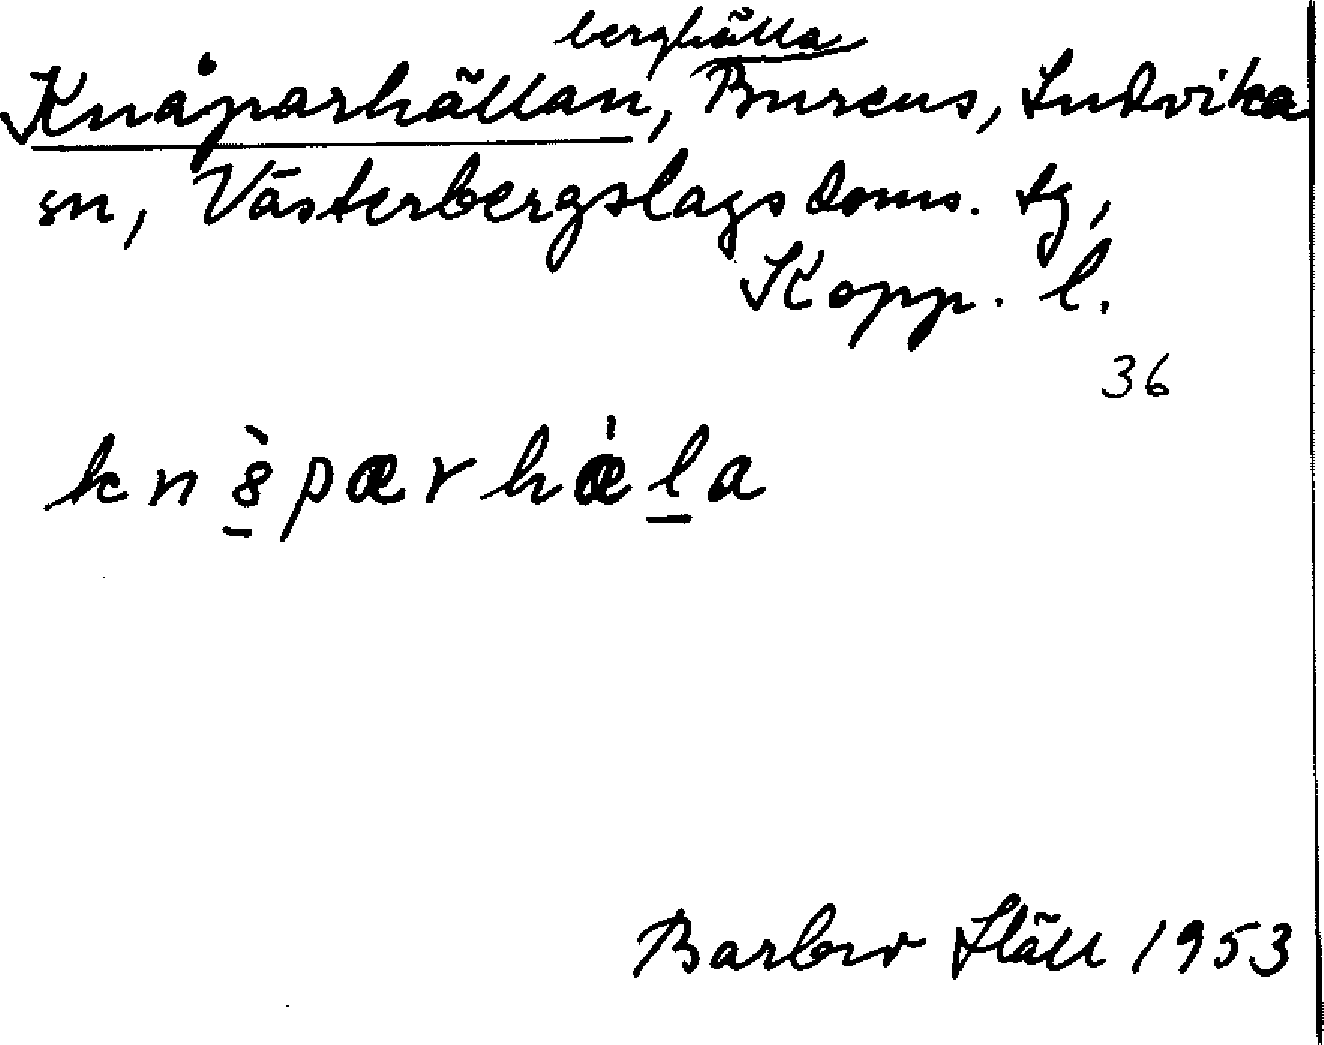 berghälla
Knåparhällan, Burens, Ludvika
sn, Västerbergslags doms. tg,
Kopp. l.
36
kn8̀pærhǽla
Barbro Släll 1953